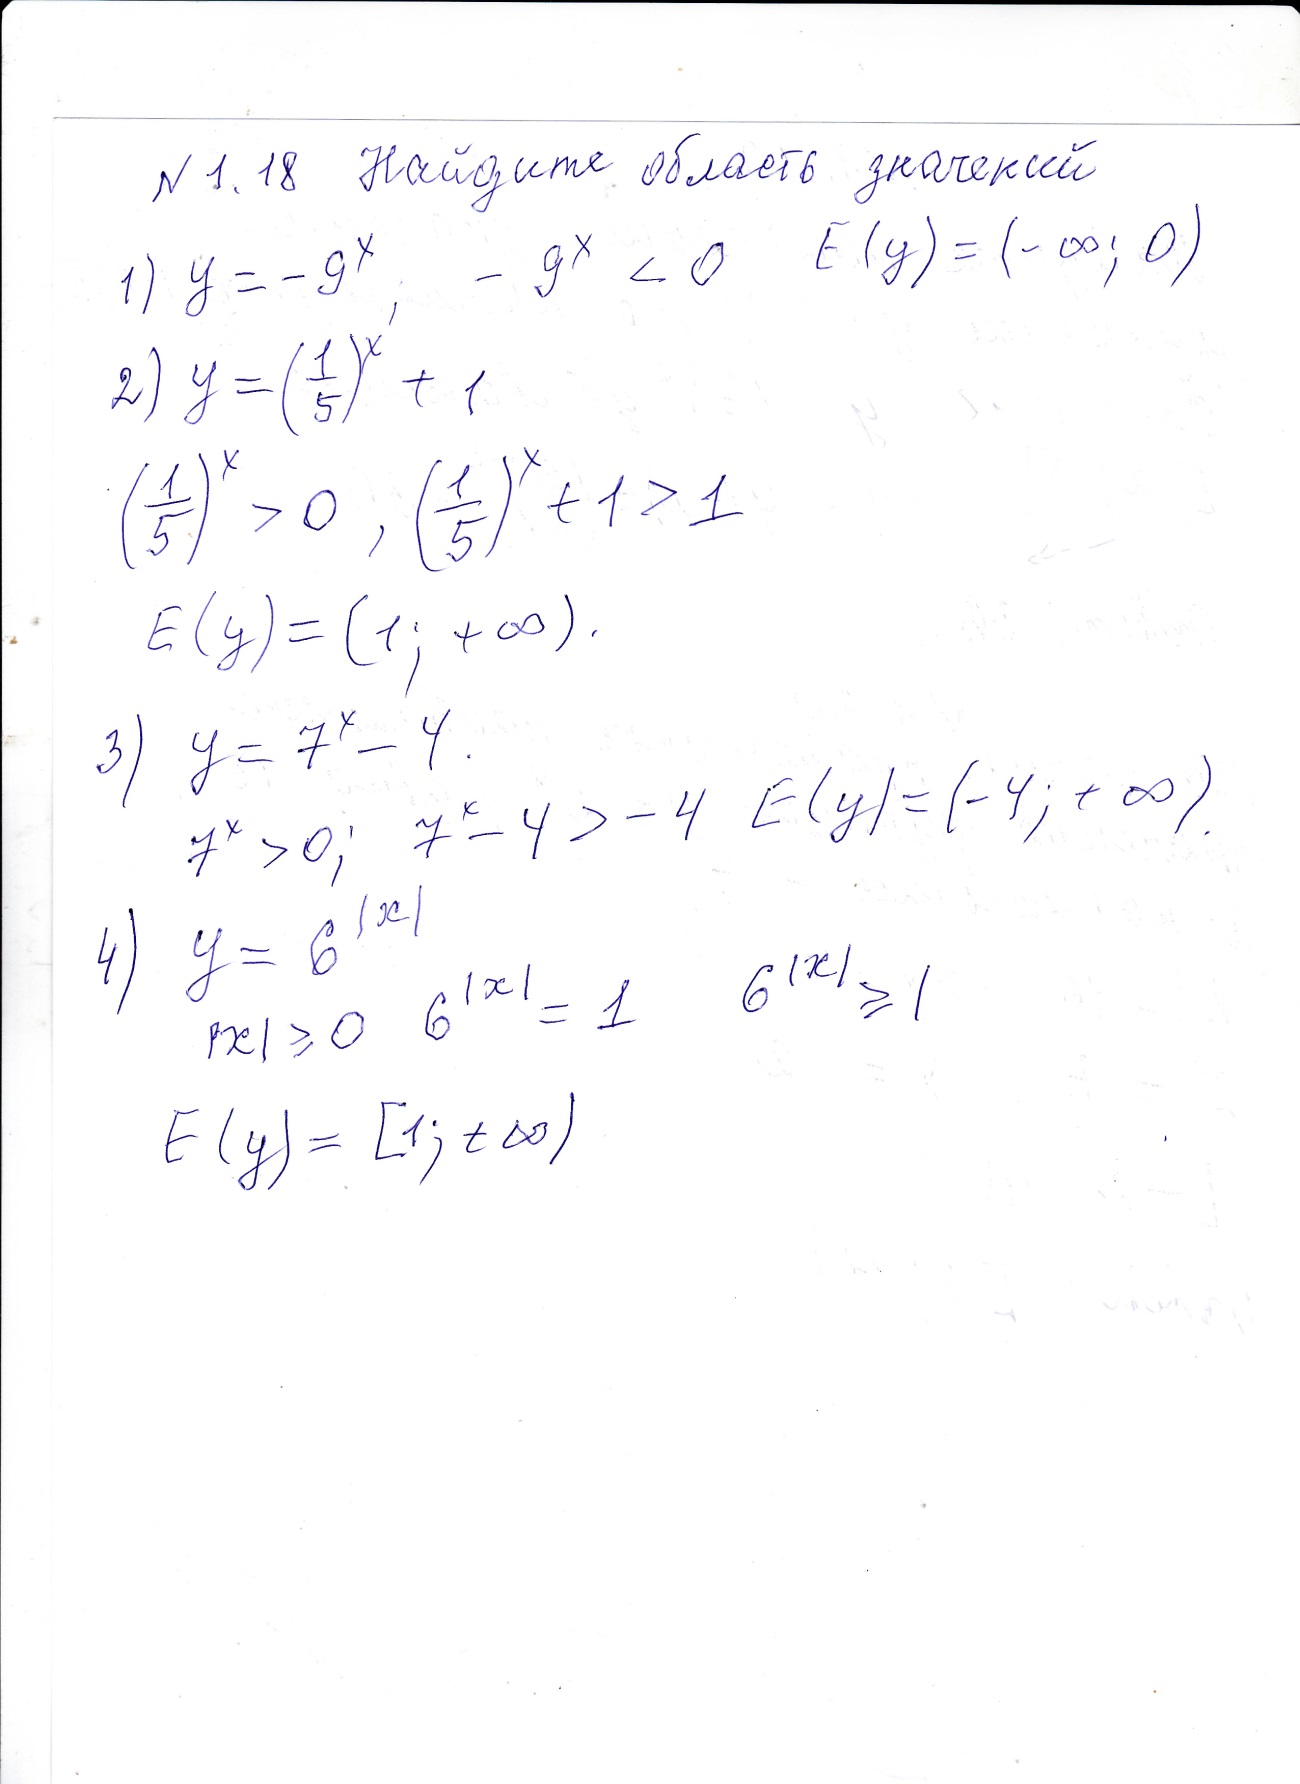 N 1.18 Найдите область значений
1) y = -9^x, -9^x < 0 E(y) = (-∞; 0)
2) y = (1/5)^x + 1
(1/5)^x > 0, (1/5)^x + 1 > 1
E(y) = (1; +∞).
3) y = 7^x - 4.
7^x > 0; 7^x - 4 > -4 E(y) = (-4; +∞).
4) y = 6^|x|
|x| ≥ 0 6^|x| = 1 6^|x| ≥ 1
E(y) = [1; +∞)